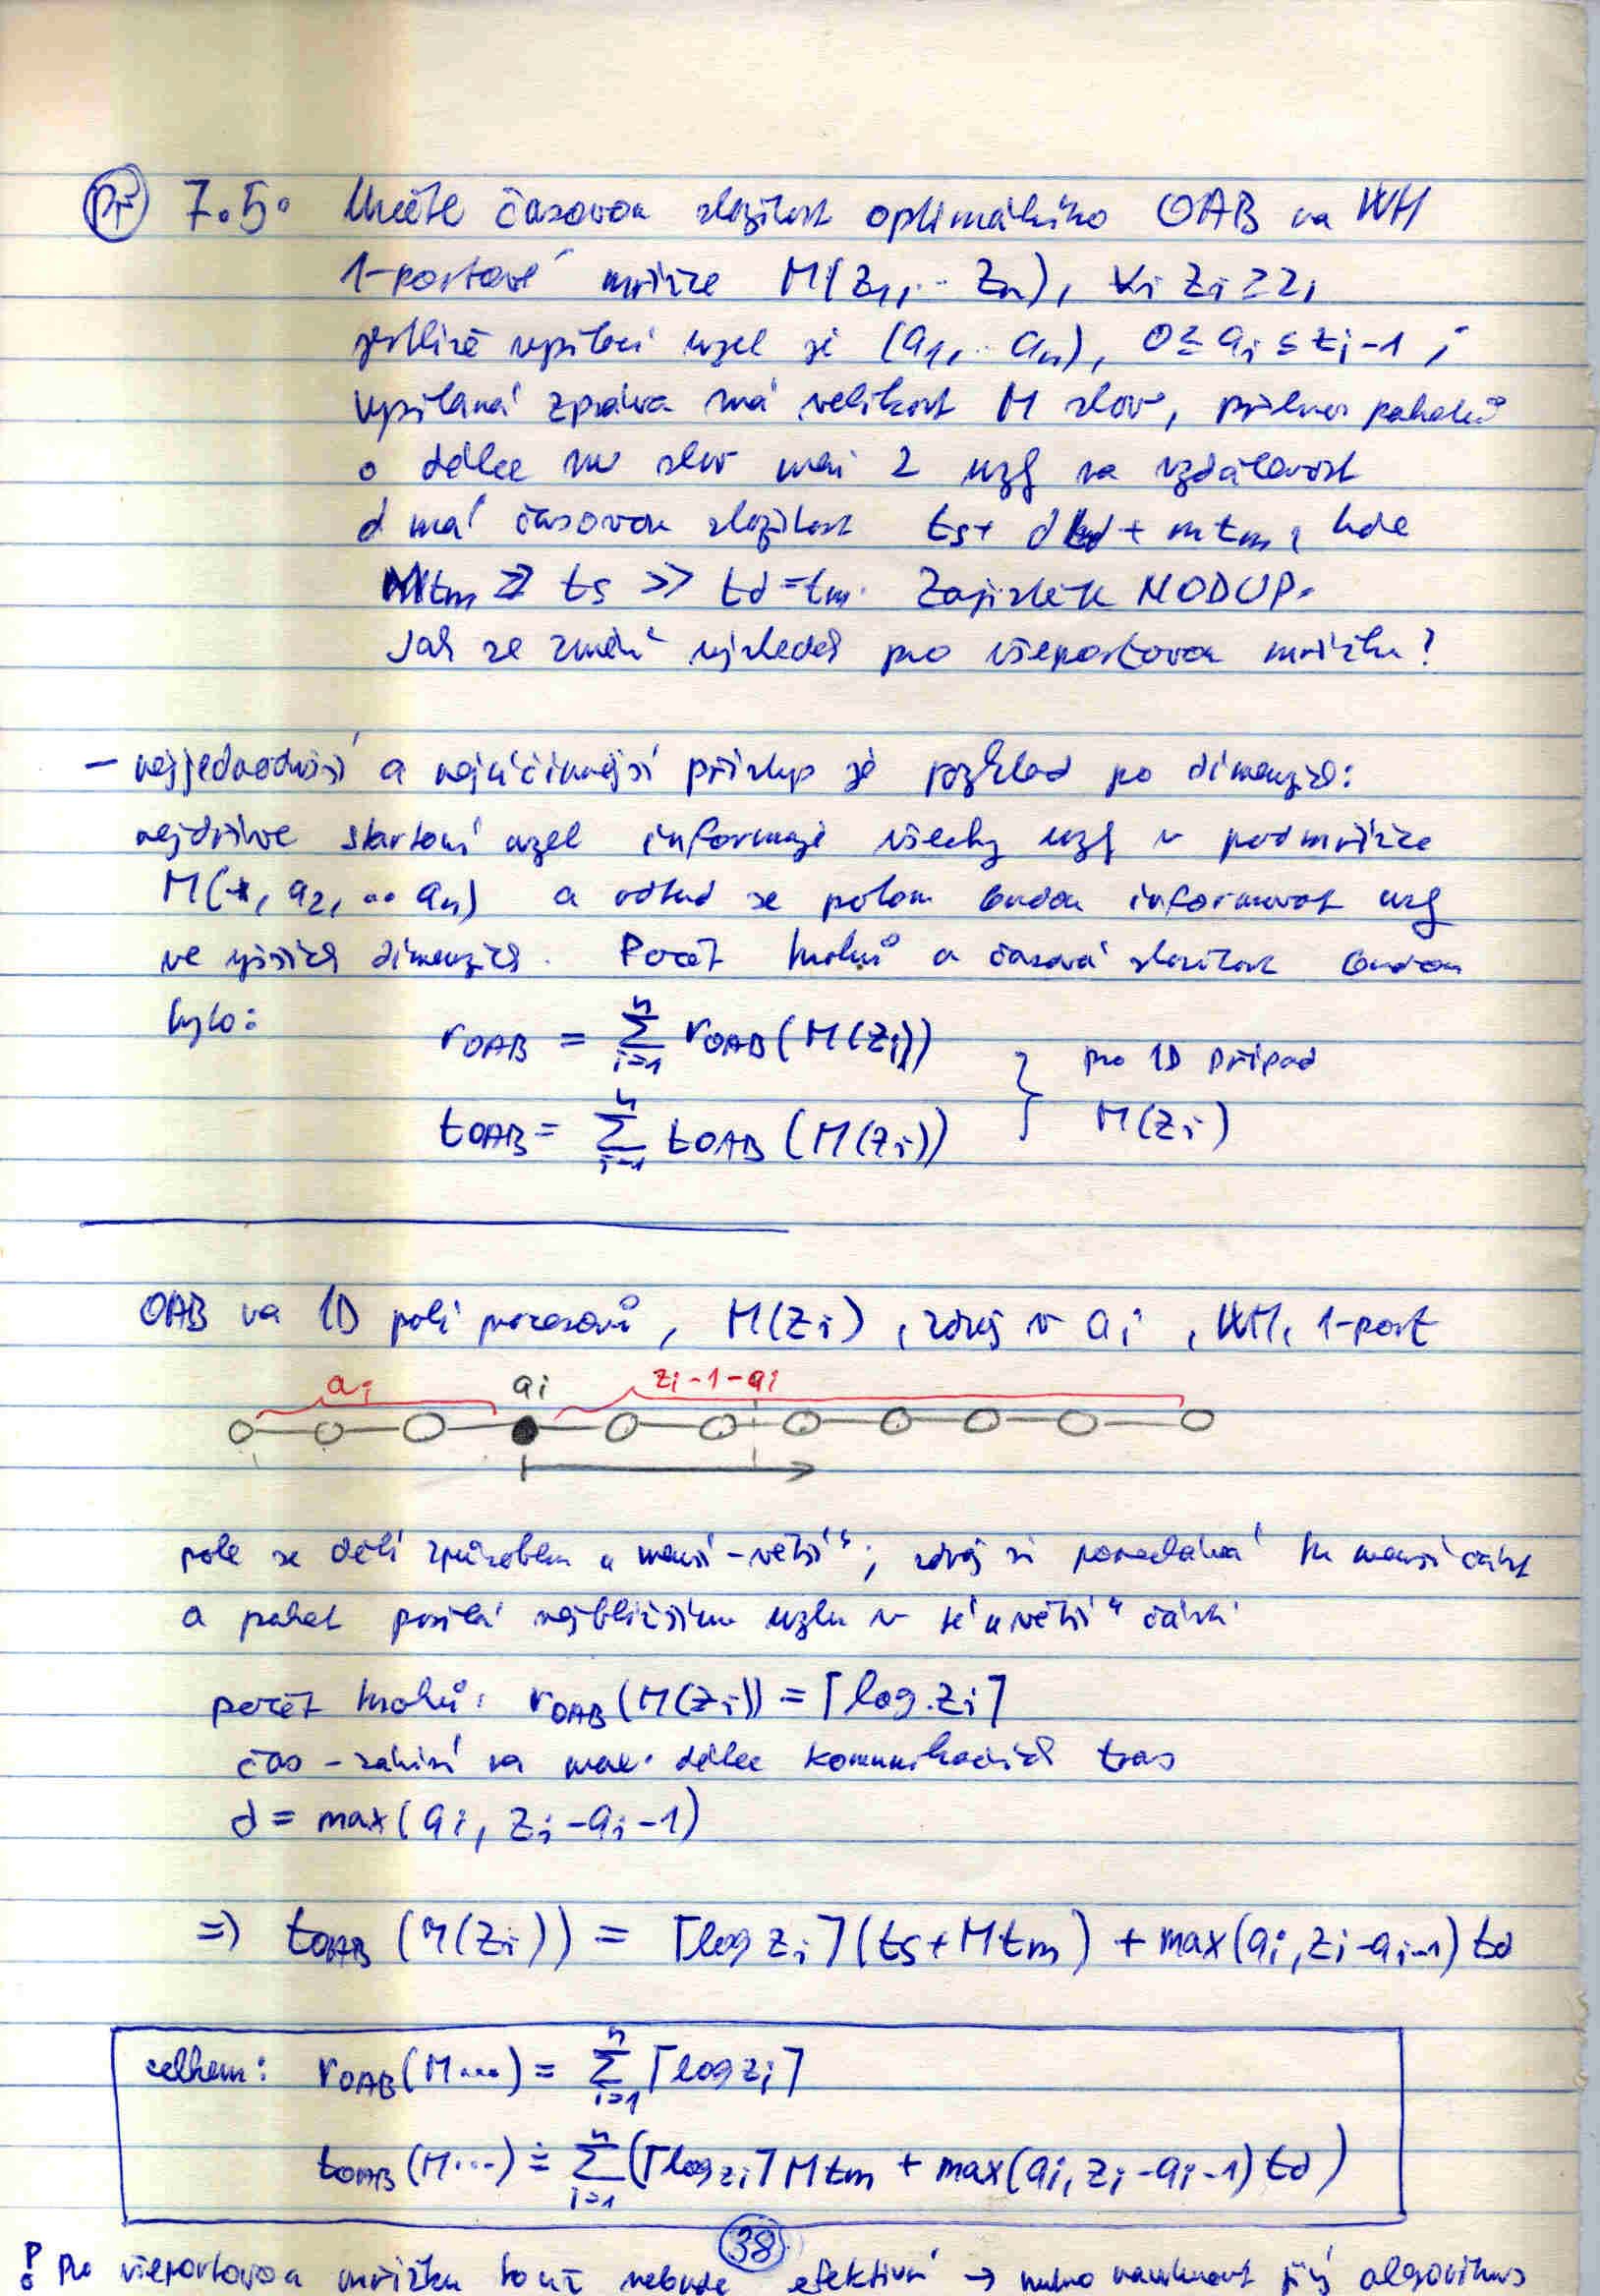 Př 7.5. Určete časovou složitost optimálního OAB na WH
1-portové mřížce M(z1, .. zn), ∀i zi ≥ 2,
jestliže vysílací uzel je (a1, .. an), 0 ≤ ai ≤ zi-1,
vysílaná zpráva má velikost M slov, přenos paketů
o délce m slov mezi 2 uzly na vzdálenost
d má časovou složitost ts + dtd + mtm, kde
Mtm ≫ ts ≫ td = tm. Zajistěte NODUP.
Jak se změní výsledek pro všeportovou mřížku?
- nejjednodušší a nejúčinnější přístup je rozklad po dimenzích:
nejdříve startovní uzel informuje všechny uzly v podmřížce
M(*, a2, .. an) a odtud se potom budou informovat uzly
ve vyšších dimenzích. Počet kroků a časová složitost budou
bylo: rOAB = Σ i=1 n rOAB(M(zi)) } pro 1D případ
tOAB = Σ i=1 n tOAB(M(zi)) M(zi)
OAB na 1D poli procesorů, M(zi), zdroj v ai, WH, 1-port
ai ai zi-1-ai
pole se dělí způsobem „menší-větší“; zdroj si ponechává tu menší část
a paket posílá nejbližšímu uzlu v té „větší“ části
počet kroků: rOAB(M(zi)) = ⌈log zi⌉
čas - závisí na max. délce komunikačních tras
d = max(ai, zi-ai-1)
⇒ tOAB(M(zi)) = ⌈log zi⌉(ts+Mtm) + max(ai, zi-ai-1)td
celkem: rOAB(M...) = Σ i=1 n ⌈log zi⌉
tOAB(M...) ≐ Σ i=1 n (⌈log zi⌉ Mtm + max(ai, zi-ai-1)td)
38
! Pro všeportovou mřížku totiž nebude efektivní → nutno navrhnout jiný algoritmus